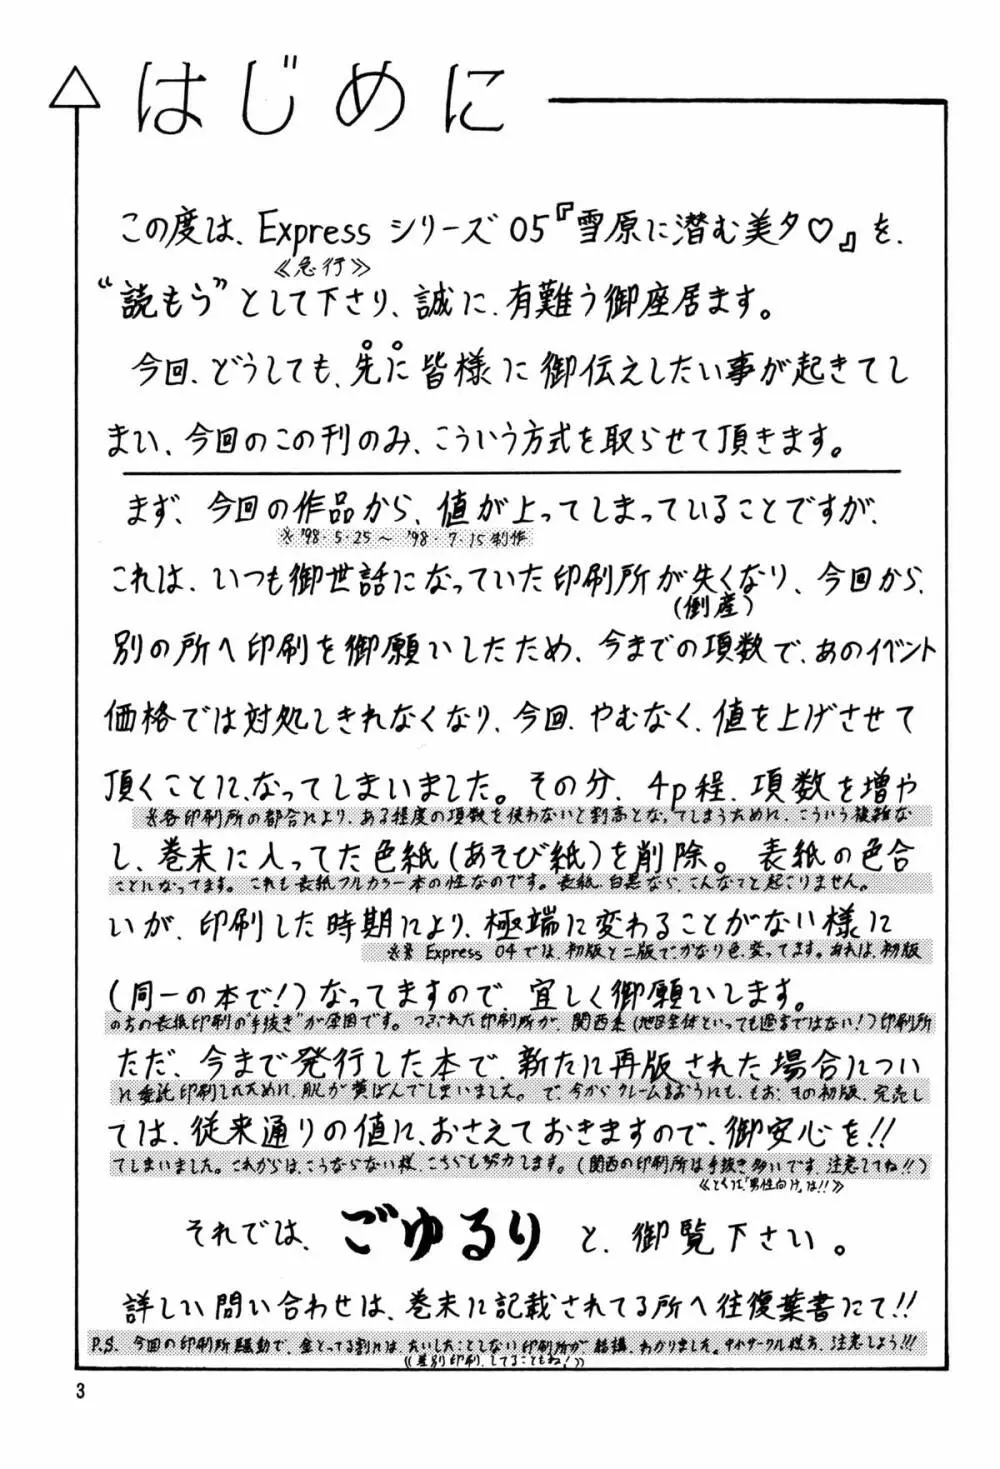 はじめに
この度は、Express シリーズ 05『雪原に潜む美夕♡』を、
《急行》
“読もう”として下さり、誠に、有難う御座居ます。
今回、どうしても、先に皆様に御伝えしたい事が起きてし
まい、今回のこの刊のみ、こういう方式を取らせて頂きます。
まず、今回の作品から、値が上ってしまっていることですが、
※'98・5・25〜'98・7・15制作
これは、いつも御世話になっていた印刷所が失くなり、今回から、
(倒産)
別の所へ印刷を御願いしたため、今までの項数で、あのイベント
価格では対処しきれなくなり、今回、やむなく、値を上げさせて
頂くことに、なってしまいました。その分、4p程、項数を増や
※各印刷所の都合により、ある程度の項数を使わないと割高となってしまうために、こういう複雑な
し、巻末に入ってた色紙(あそび紙)を削除。表紙の色合
ことになってます。これも表紙フルカラー本の性なのです。表紙、白黒なら、こんなこと起こりません。
いが、印刷した時期により、極端に変わることがない様に
※※ Express 04では、初版と二版で、かなり色、変ってます。あれは、初版
(同一の本で!)なってますので、宜しく御願いします。
のちの表紙印刷の“手抜き”が原因です。つぶれた印刷所が、関西系(地区全体といっても過言ではない!)印刷所
ただ、今まで発行した本で、新たに再版された場合につい
に委託印刷したために、肌が黄ばんでしまいました。で、今からクレームをおうにも、もお、その初版、完売し
ては、従来通りの値に、おさえておきますので、御安心を!!
てしまいました。これからは、こうならない様、こちらも努力します。(関西の印刷所は手抜き多いです、注意してね!!)
《とくに「男性向け」は!!》
それでは、ごゆるりと、御覧下さい。
詳しい問い合わせは、巻末に記載されてる所へ往復葉書にて!!
P.S. 今回の印刷所騒動で、金とってる割には、たいしたことしない印刷所が、結構、わかりました。サークル様方、注意しよう!!!
《差別印刷、してることもね!》
3